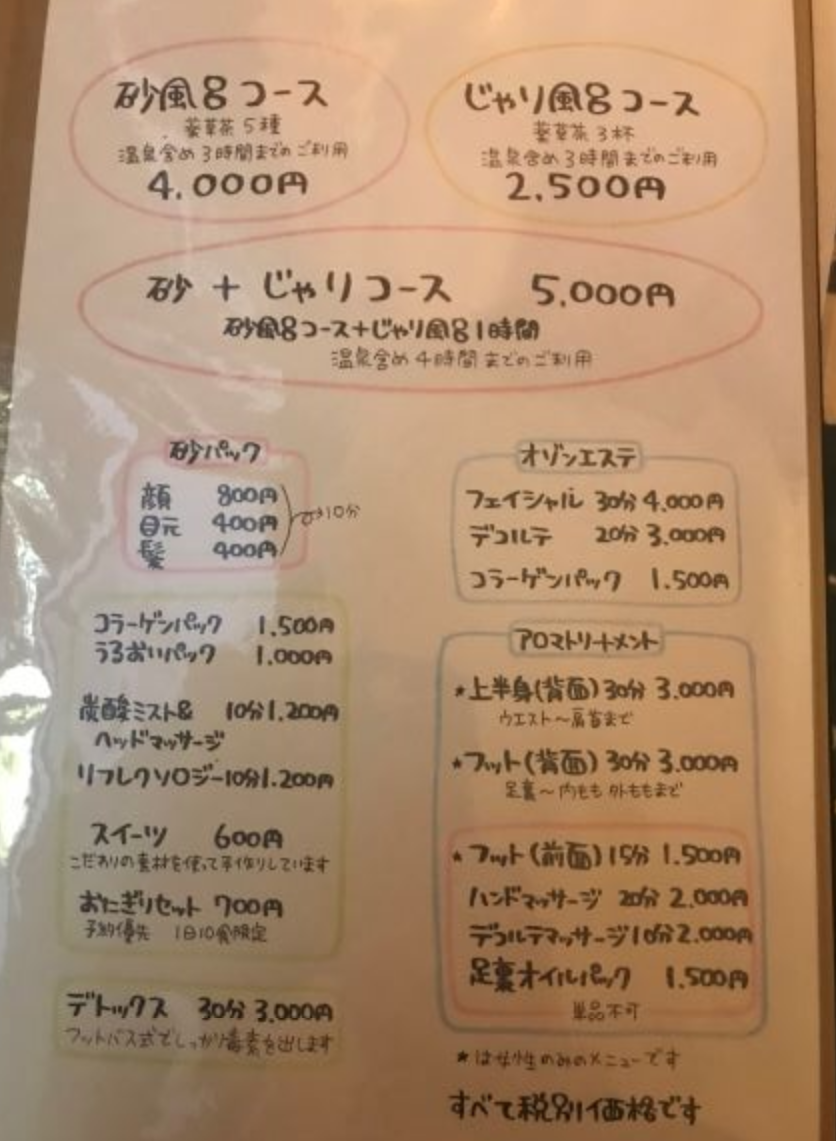 砂風呂コース
薬草茶 5種
温泉含め3時間までのご利用
4.000円
じゃり風呂コース
薬草茶 3杯
温泉含め3時間までのご利用
2.500円
砂 + じゃりコース 5.000円
砂風呂コース+じゃり風呂1時間
温泉含め4時間までのご利用
砂パック
顔 800円
目元 400円
髪 400円
10分
コラーゲンパック 1.500円
うるおいパック 1.000円
炭酸ミスト& 10分1.200円
ヘッドマッサージ
リフレクソロジー10分1.200円
スイーツ 600円
こだわりの素材を使って手作りしています
おにぎりセット 700円
予約優先 1日10食限定
デトックス 30分 3.000円
フットバス式でしっかり毒素を出します
オゾンエステ
フェイシャル 30分 4.000円
デコルテ 20分 3.000円
コラーゲンパック 1.500円
アロマトリートメント
★上半身(背面)30分 3.000円
ウエスト〜肩首まで
★フット(背面)30分 3.000円
足裏〜内もも外ももまで
★フット(前面)15分 1.500円
ハンドマッサージ 20分 2.000円
デコルテマッサージ10分2.000円
足裏オイルパック 1.500円
単品不可
★は女性のみのメニューです
すべて税別価格です